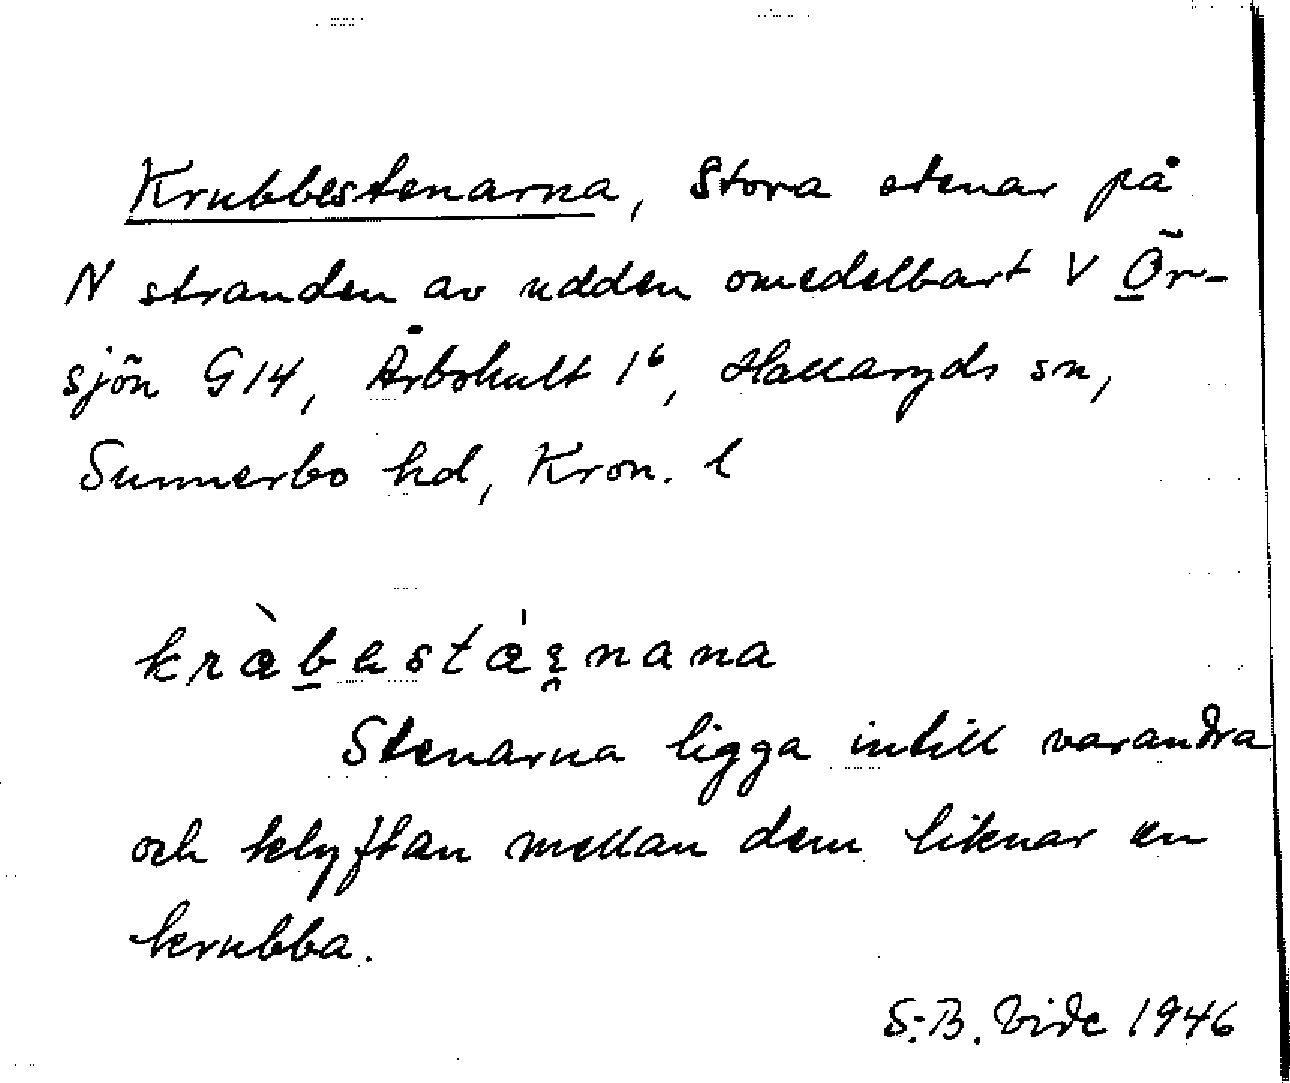 Krubbestenarna, Stora stenar på
N stranden av udden omedelbart V Ör-
sjön G14, Årbokult 1⁶, Hallaryds sn,
Sunnerbo hd, Kron. l
Stenarna ligga intill varandra
och klyftan mellan dem liknar en
krubba.
S.-B. Vide 1946